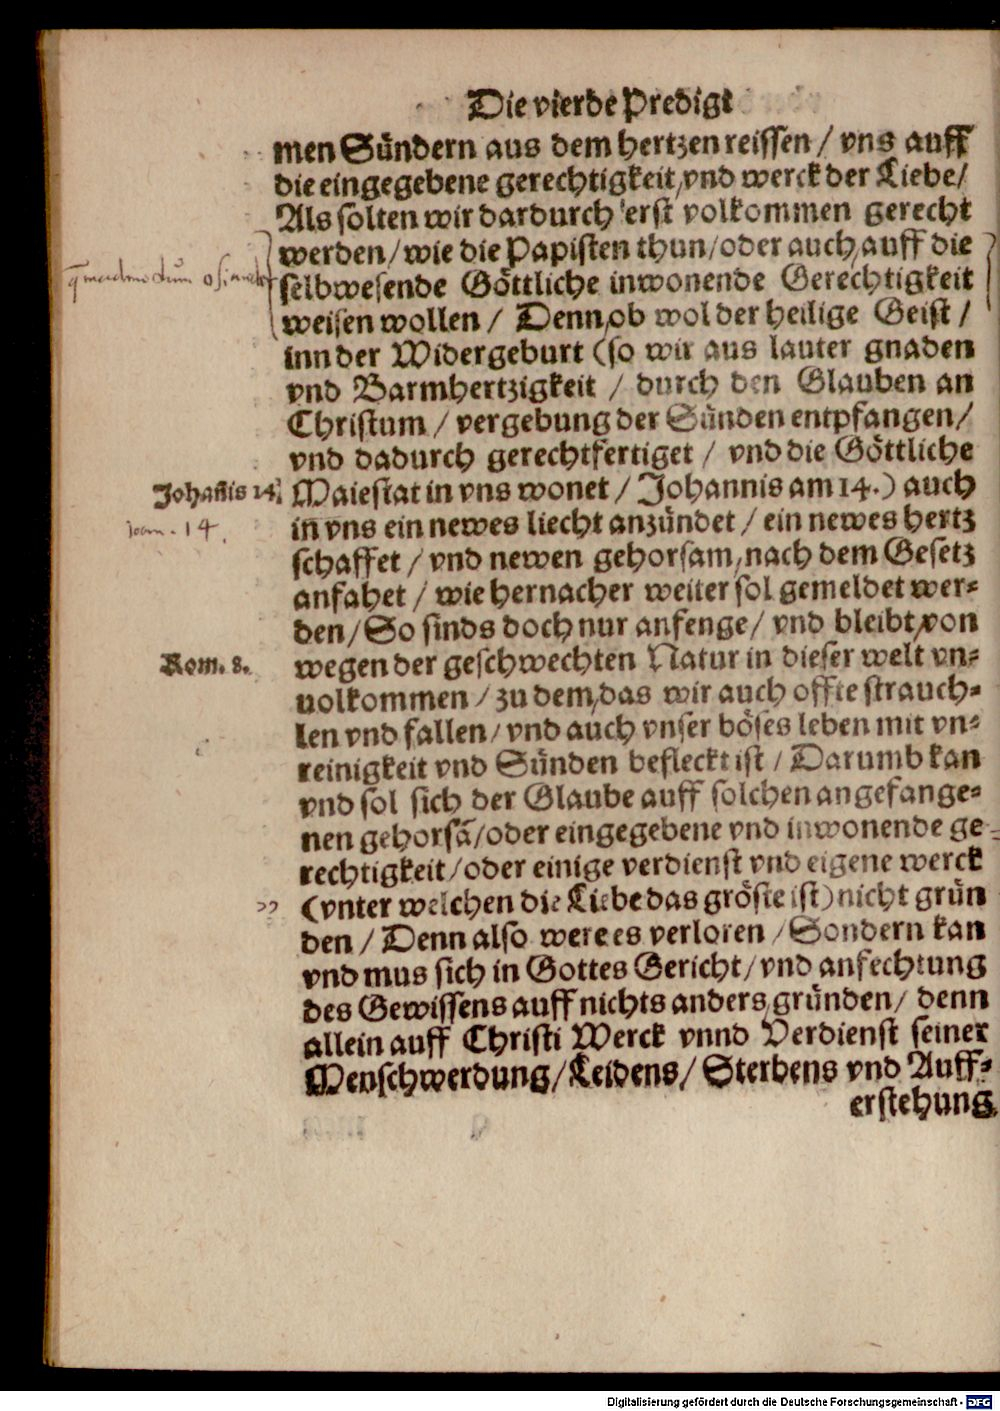 Die vierde Predigt
men Sündern aus dem hertzen reissen / vns auff
die eingegebene gerechtigkeit, vnd werck der Liebe/
Als solten wir dardurch erst volkommen gerecht
werden / wie die Papisten thun / oder auch, auff die
selbwesende Göttliche inwonende Gerechtigkeit
weisen wollen / Denn, ob wol der heilige Geist /
inn der Widergeburt (so wir aus lauter gnaden
vnd Barmhertzigkeit / durch den Glauben an
Christum / vergebung der Sünden entpfangen /
vnd dadurch gerechtfertiget / vnd die Göttliche
Johañis 14.
Maiestat in vns wonet / Johannis am 14.) auch
Ioan. 14.
in vns ein newes liecht anzündet / ein newes hertz
schaffet / vnd newen gehorsam, nach dem Gesetz
anfahet / wie hernacher weiter sol gemeldet wer-
den / So sinds doch nur anfenge / vnd bleibt, von
Rom. 8.
wegen der geschwechten Natur in dieser welt vn-
uolkommen / zu dem, das wir auch offte strauch-
len vnd fallen / vnd auch vnser böses leben mit vn-
reinigkeit vnd Sünden befleckt ist / Darumb kan
vnd sol sich der Glaube auff solchen angefange-
nen gehorsã / oder eingegebene vnd inwonende ge-
rechtigkeit / oder einige verdienst vnd eigene werck
(vnter welchen die Liebe das gröste ist) nicht grün
den / Denn also were es verloren / Sondern kan
vnd mus sich in Gottes Gericht / vnd anfechtung
des Gewissens auff nichts anders, gründen / denn
allein auff Christi Werck vnnd Verdienst seiner
Menschwerdung / Leidens / Sterbens vnd Auff-
erstehung
Digitalisierung gefördert durch die Deutsche Forschungsgemeinschaft - DFG